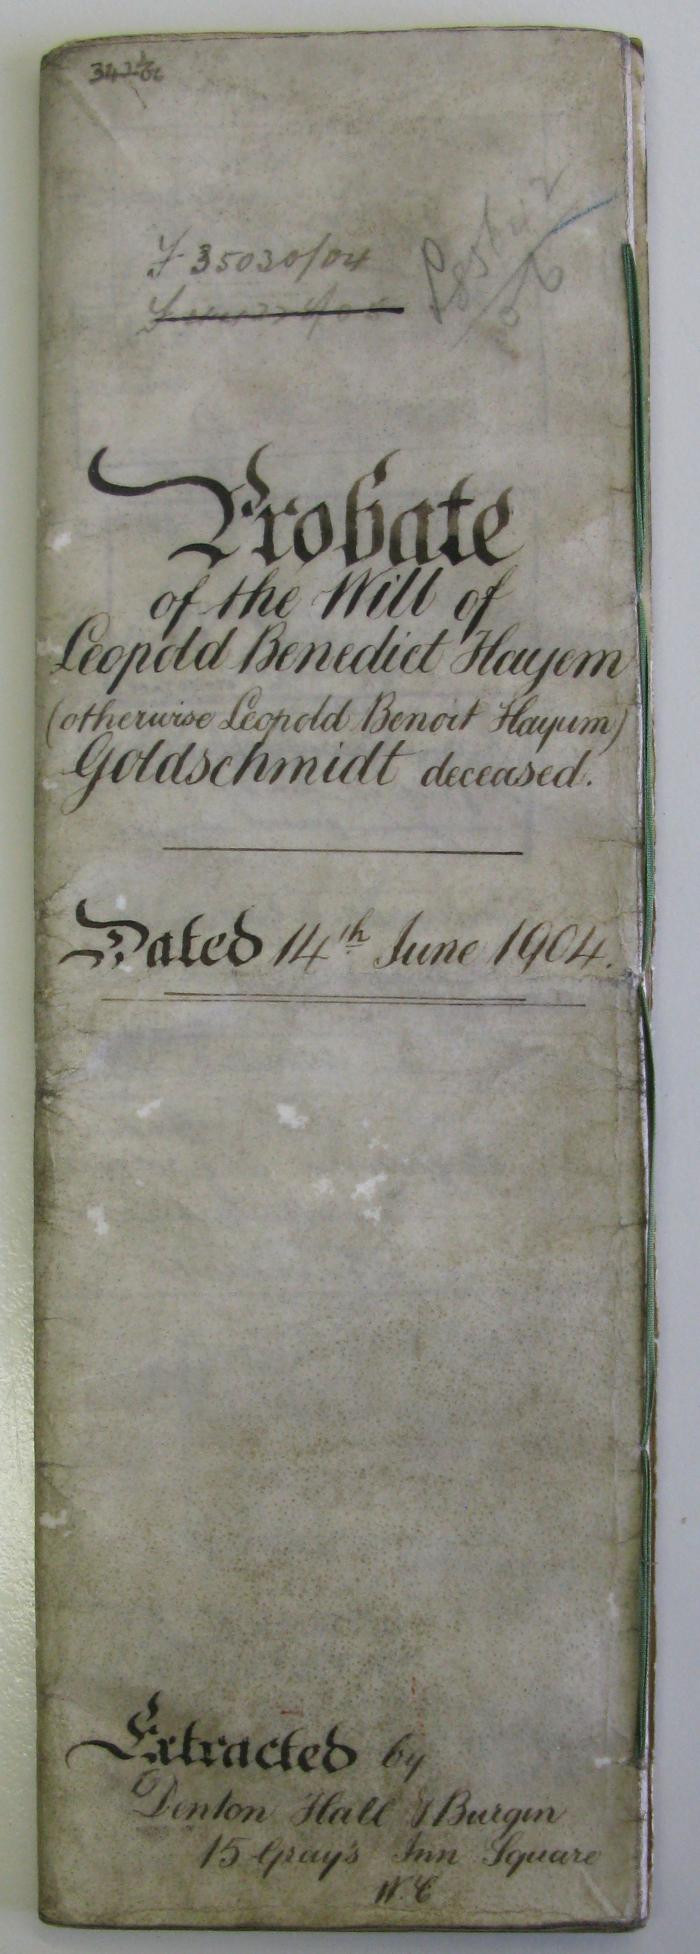 F 35030/04
Probate
of the Will of
Leopold Benedict Hayem
(otherwise Leopold Benoit Hayum)
Goldschmidt deceased.
Dated 14th June 1904.
Extracted by
Denton Hall & Burgin
15 Gray's Inn Square
W.C